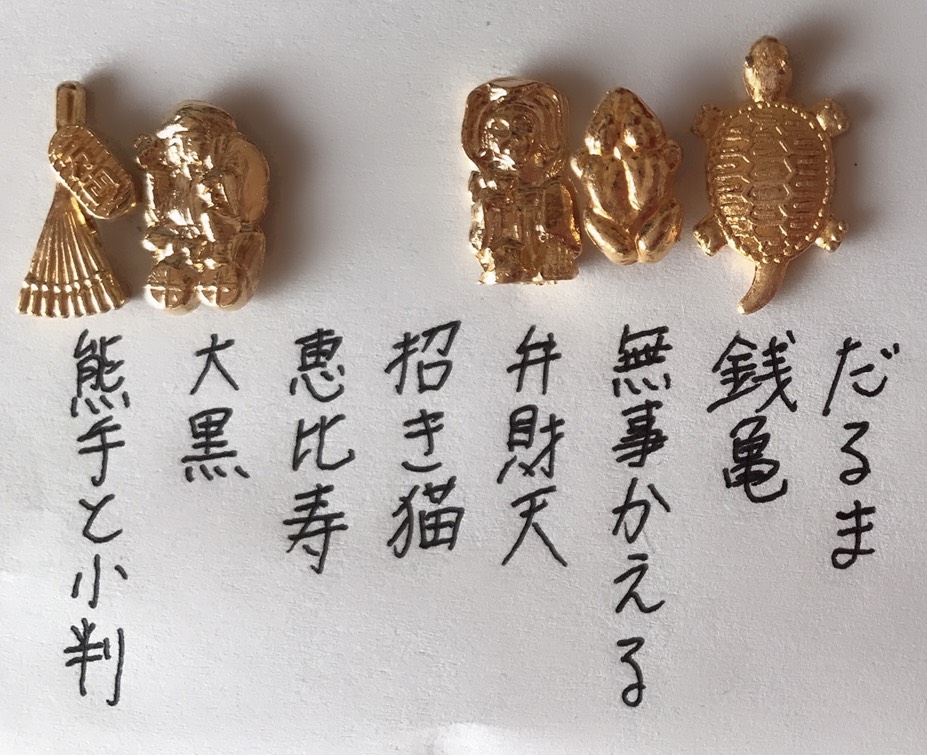 だるま
銭亀
無事かえる
弁財天
招き猫
恵比寿
大黒
熊手と小判